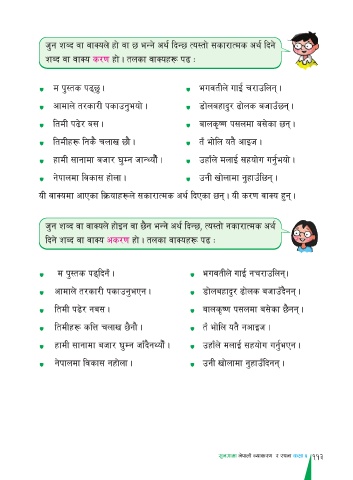 जुन शब्द वा वाक्यले हो वा छ भन्ने अर्थ दिन्छ त्यस्तो सकारात्मक अर्थ दिने
शब्द वा वाक्य करण हो । तलका वाक्यहरू पढ :
म पुस्तक पढ्छु ।
आमाले तरकारी पकाउनुभयो ।
तिमी पढेर बस ।
तिमीहरू निकै चलाख छौ ।
हामी सानामा बजार घुम्न जान्थ्यौँ ।
नेपालमा विकास होला ।
भगवतीले गाई चराउलिन् ।
डोलबहादुर ढोलक बजाउँछन् ।
बालकृष्ण पसलमा बसेका छन् ।
तँ भोलि यतै आइज ।
उहाँले मलाई सहयोग गर्नुभयो ।
उनी खोलामा नुहाउँछिन् ।
यी वाक्यमा आएका क्रियाहरूले सकारात्मक अर्थ दिएका छन् । यी करण वाक्य हुन् ।
जुन शब्द वा वाक्यले होइन वा छैन भन्ने अर्थ दिन्छ, त्यस्तो नकारात्मक अर्थ
दिने शब्द वा वाक्य अकरण हो । तलका वाक्यहरू पढ :
म पुस्तक पढ्दिनँ ।
आमाले तरकारी पकाउनुभएन ।
तिमी पढेर नबस ।
तिमीहरू कत्ति चलाख छैनौ ।
हामी सानामा बजार घुम्न जाँदैनथ्यौँ ।
नेपालमा विकास नहोला ।
भगवतीले गाई नचराउलिन् ।
डोलबहादुर ढोलक बजाउँदैनन् ।
बालकृष्ण पसलमा बसेका छैनन् ।
तँ भोलि यतै नआइज ।
उहाँले मलाई सहयोग गर्नुभएन ।
उनी खोलामा नुहाउँदिनन् ।
नेपाली व्याकरण र रचना कक्षा ५ ११३